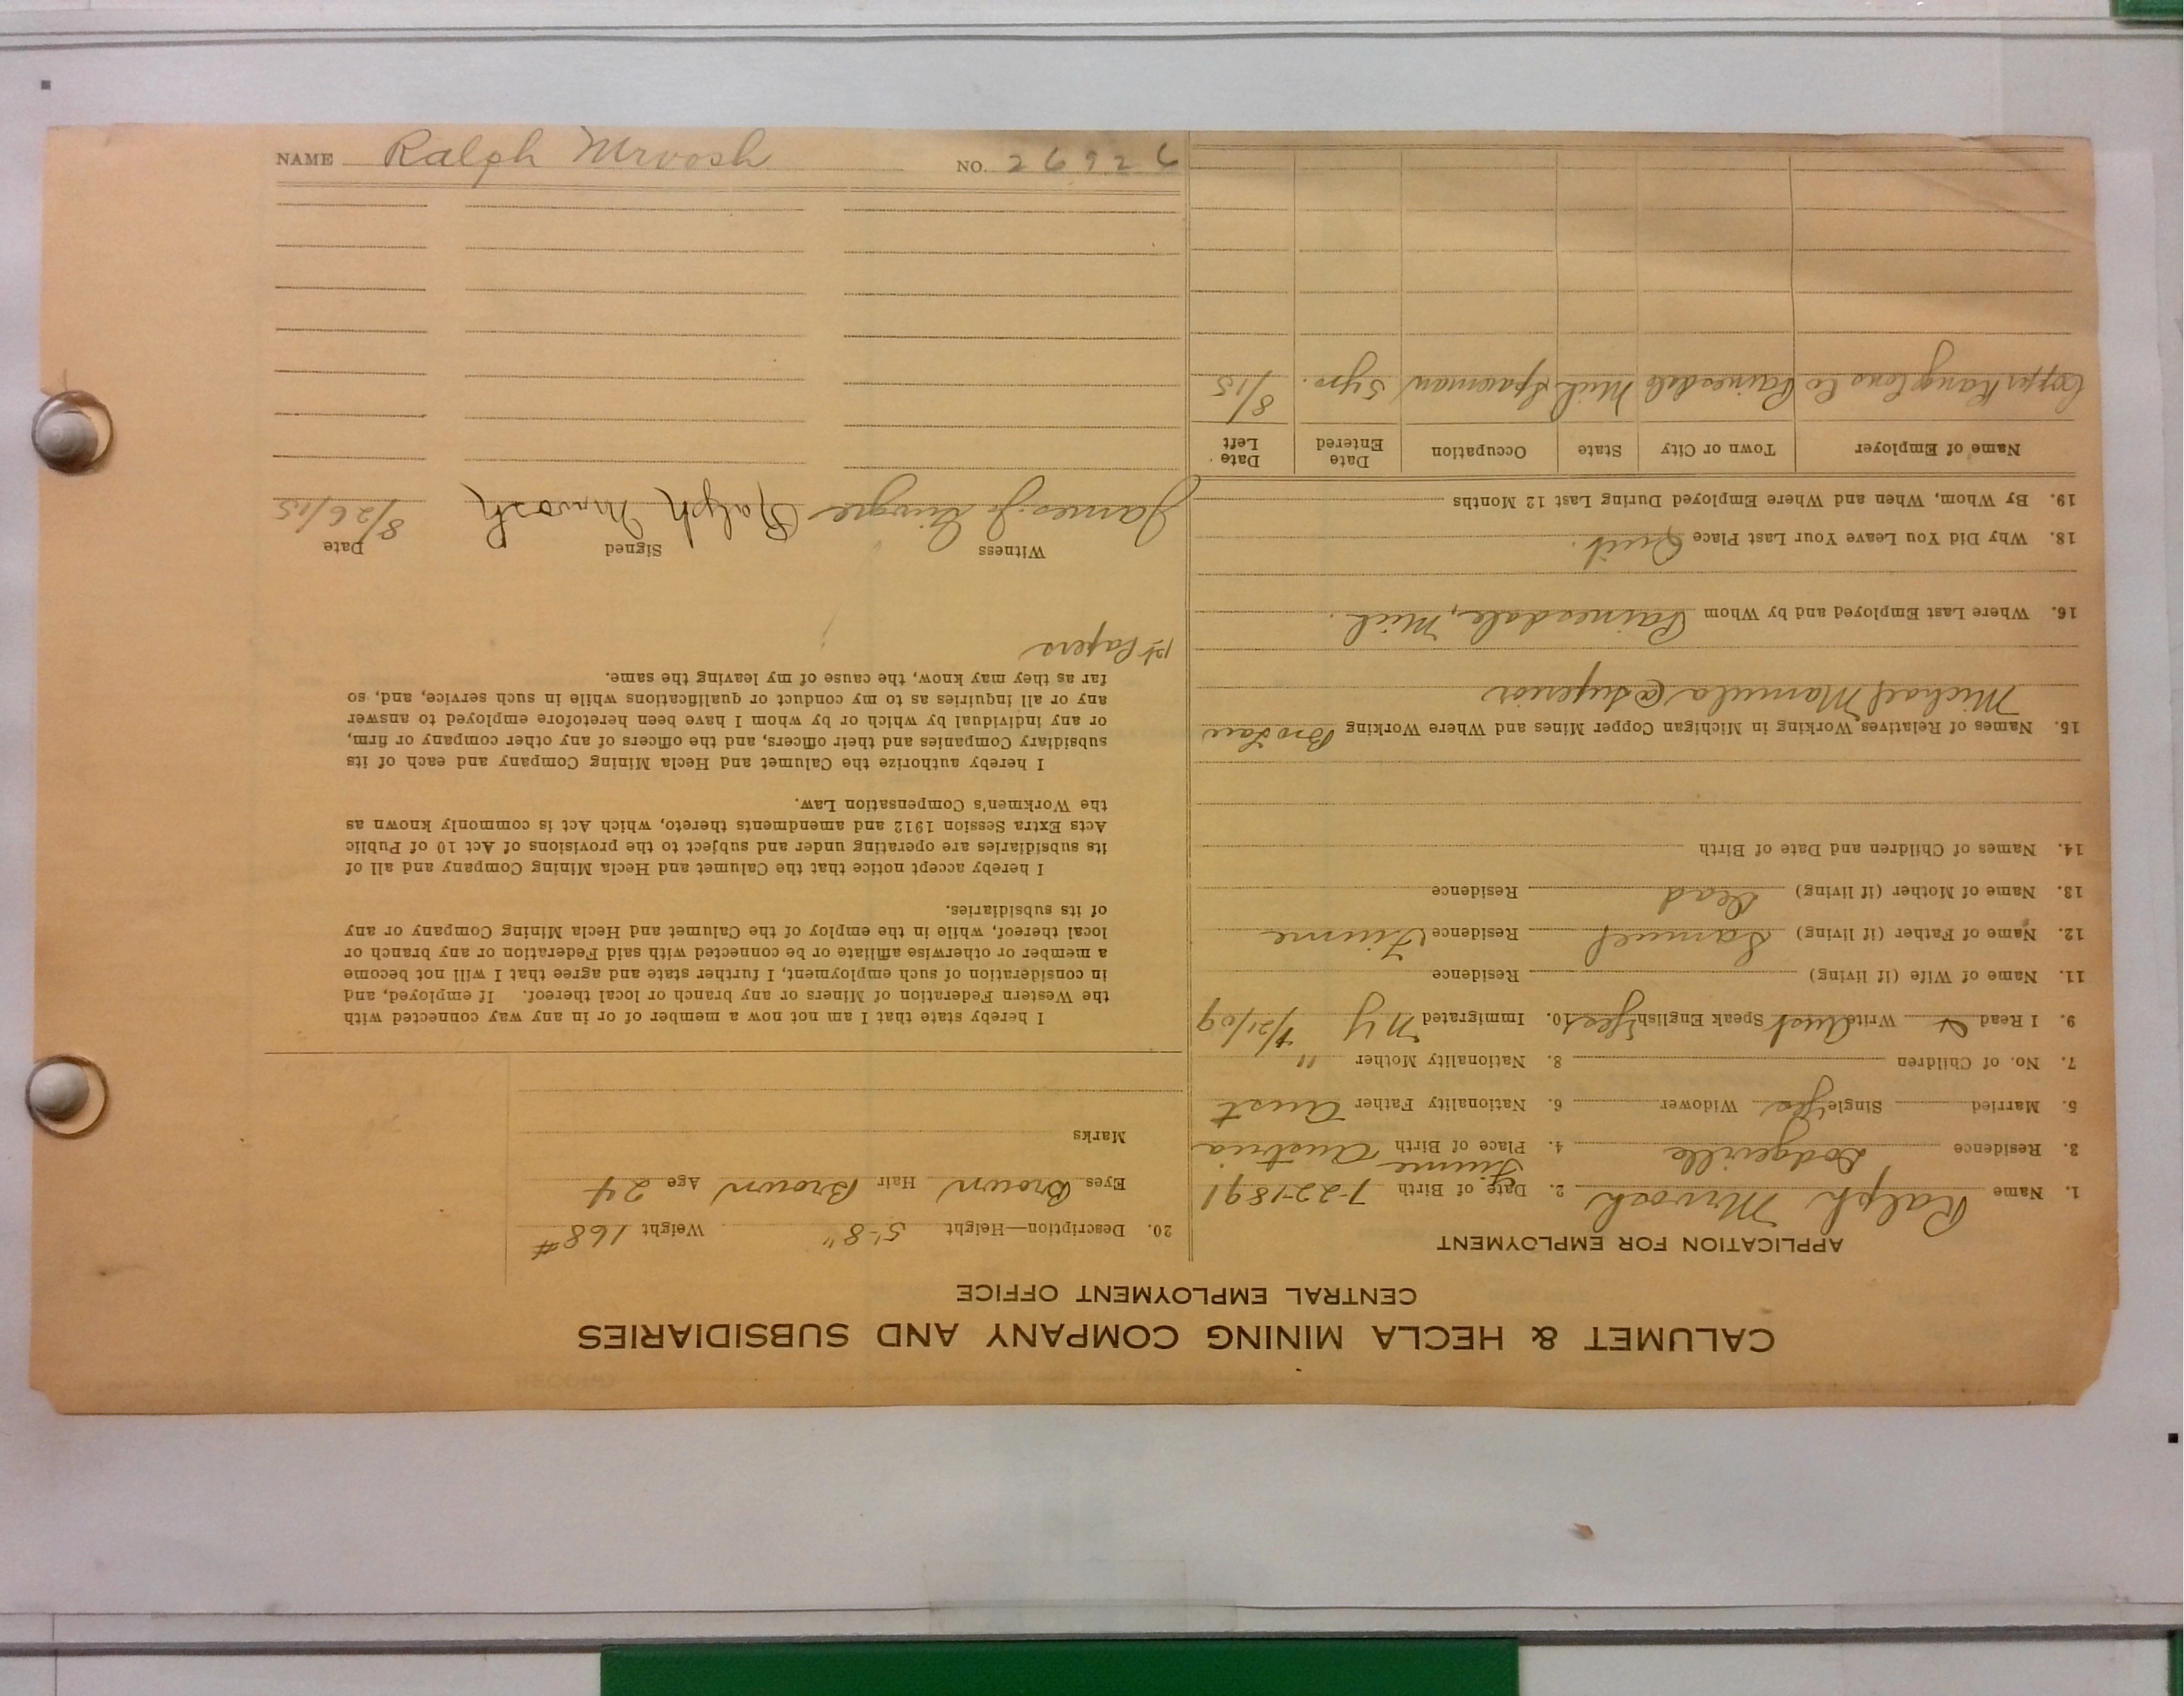 CALUMET & HECLA MINING COMPANY AND SUBSIDIARIES
CENTRAL EMPLOYMENT OFFICE
APPLICATION FOR EMPLOYMENT
1. Name Ralph Mrvosh 2. Date of Birth 7-22-1891
3. Residence Dodgeville 4. Place of Birth Fiume Austria
5. Married Single Yes Widower 6. Nationality Father Aust
7. No. of Children 8. Nationality Mother "
9. I Read & Write Aust Speak English Yes 10. Immigrated NY 4/21/09
11. Name of Wife (if living) Residence
12. Name of Father (if living) Samuel Residence Fiume
13. Name of Mother (if living) Dead Residence
14. Names of Children and Date of Birth
15. Names of Relatives Working in Michigan Copper Mines and Where Working Bro Law
Michael Mamula @ Superior
16. Where Last Employed and by Whom Painesdale, Mich.
18. Why Did You Leave Your Last Place Quit.
19. By Whom, When and Where Employed During Last 12 Months
Name of Employer Town or City State Occupation Date Entered Date Left
Copper Range Cons Co Painesdale Mich Spaceman 5 yrs. 8/15
20. Description—Height 5'-8" Weight 168 #
Eyes Brown Hair Brown Age 24
Marks
I hereby state that I am not now a member of or in any way connected with
the Western Federation of Miners or any branch or local thereof. If employed, and
in consideration of such employment, I further state and agree that I will not become
a member or otherwise affiliate or be connected with said Federation or any branch or
local thereof, while in the employ of the Calumet and Hecla Mining Company or any
of its subsidiaries.
I hereby accept notice that the Calumet and Hecla Mining Company and all of
its subsidiaries are operating under and subject to the provisions of Act 10 of Public
Acts Extra Session 1912 and amendments thereto, which Act is commonly known as
the Workmen's Compensation Law.
I hereby authorize the Calumet and Hecla Mining Company and each of its
subsidiary Companies and their officers, and the officers of any other company or firm,
or any individual by which or by whom I have been heretofore employed to answer
any or all inquiries as to my conduct or qualifications while in such service, and, so
far as they may know, the cause of my leaving the same.
1st Papers
Witness Signed Date
James J. Ralph Mrvosh 8/26/15
NAME Ralph Mrvosh NO. 26926